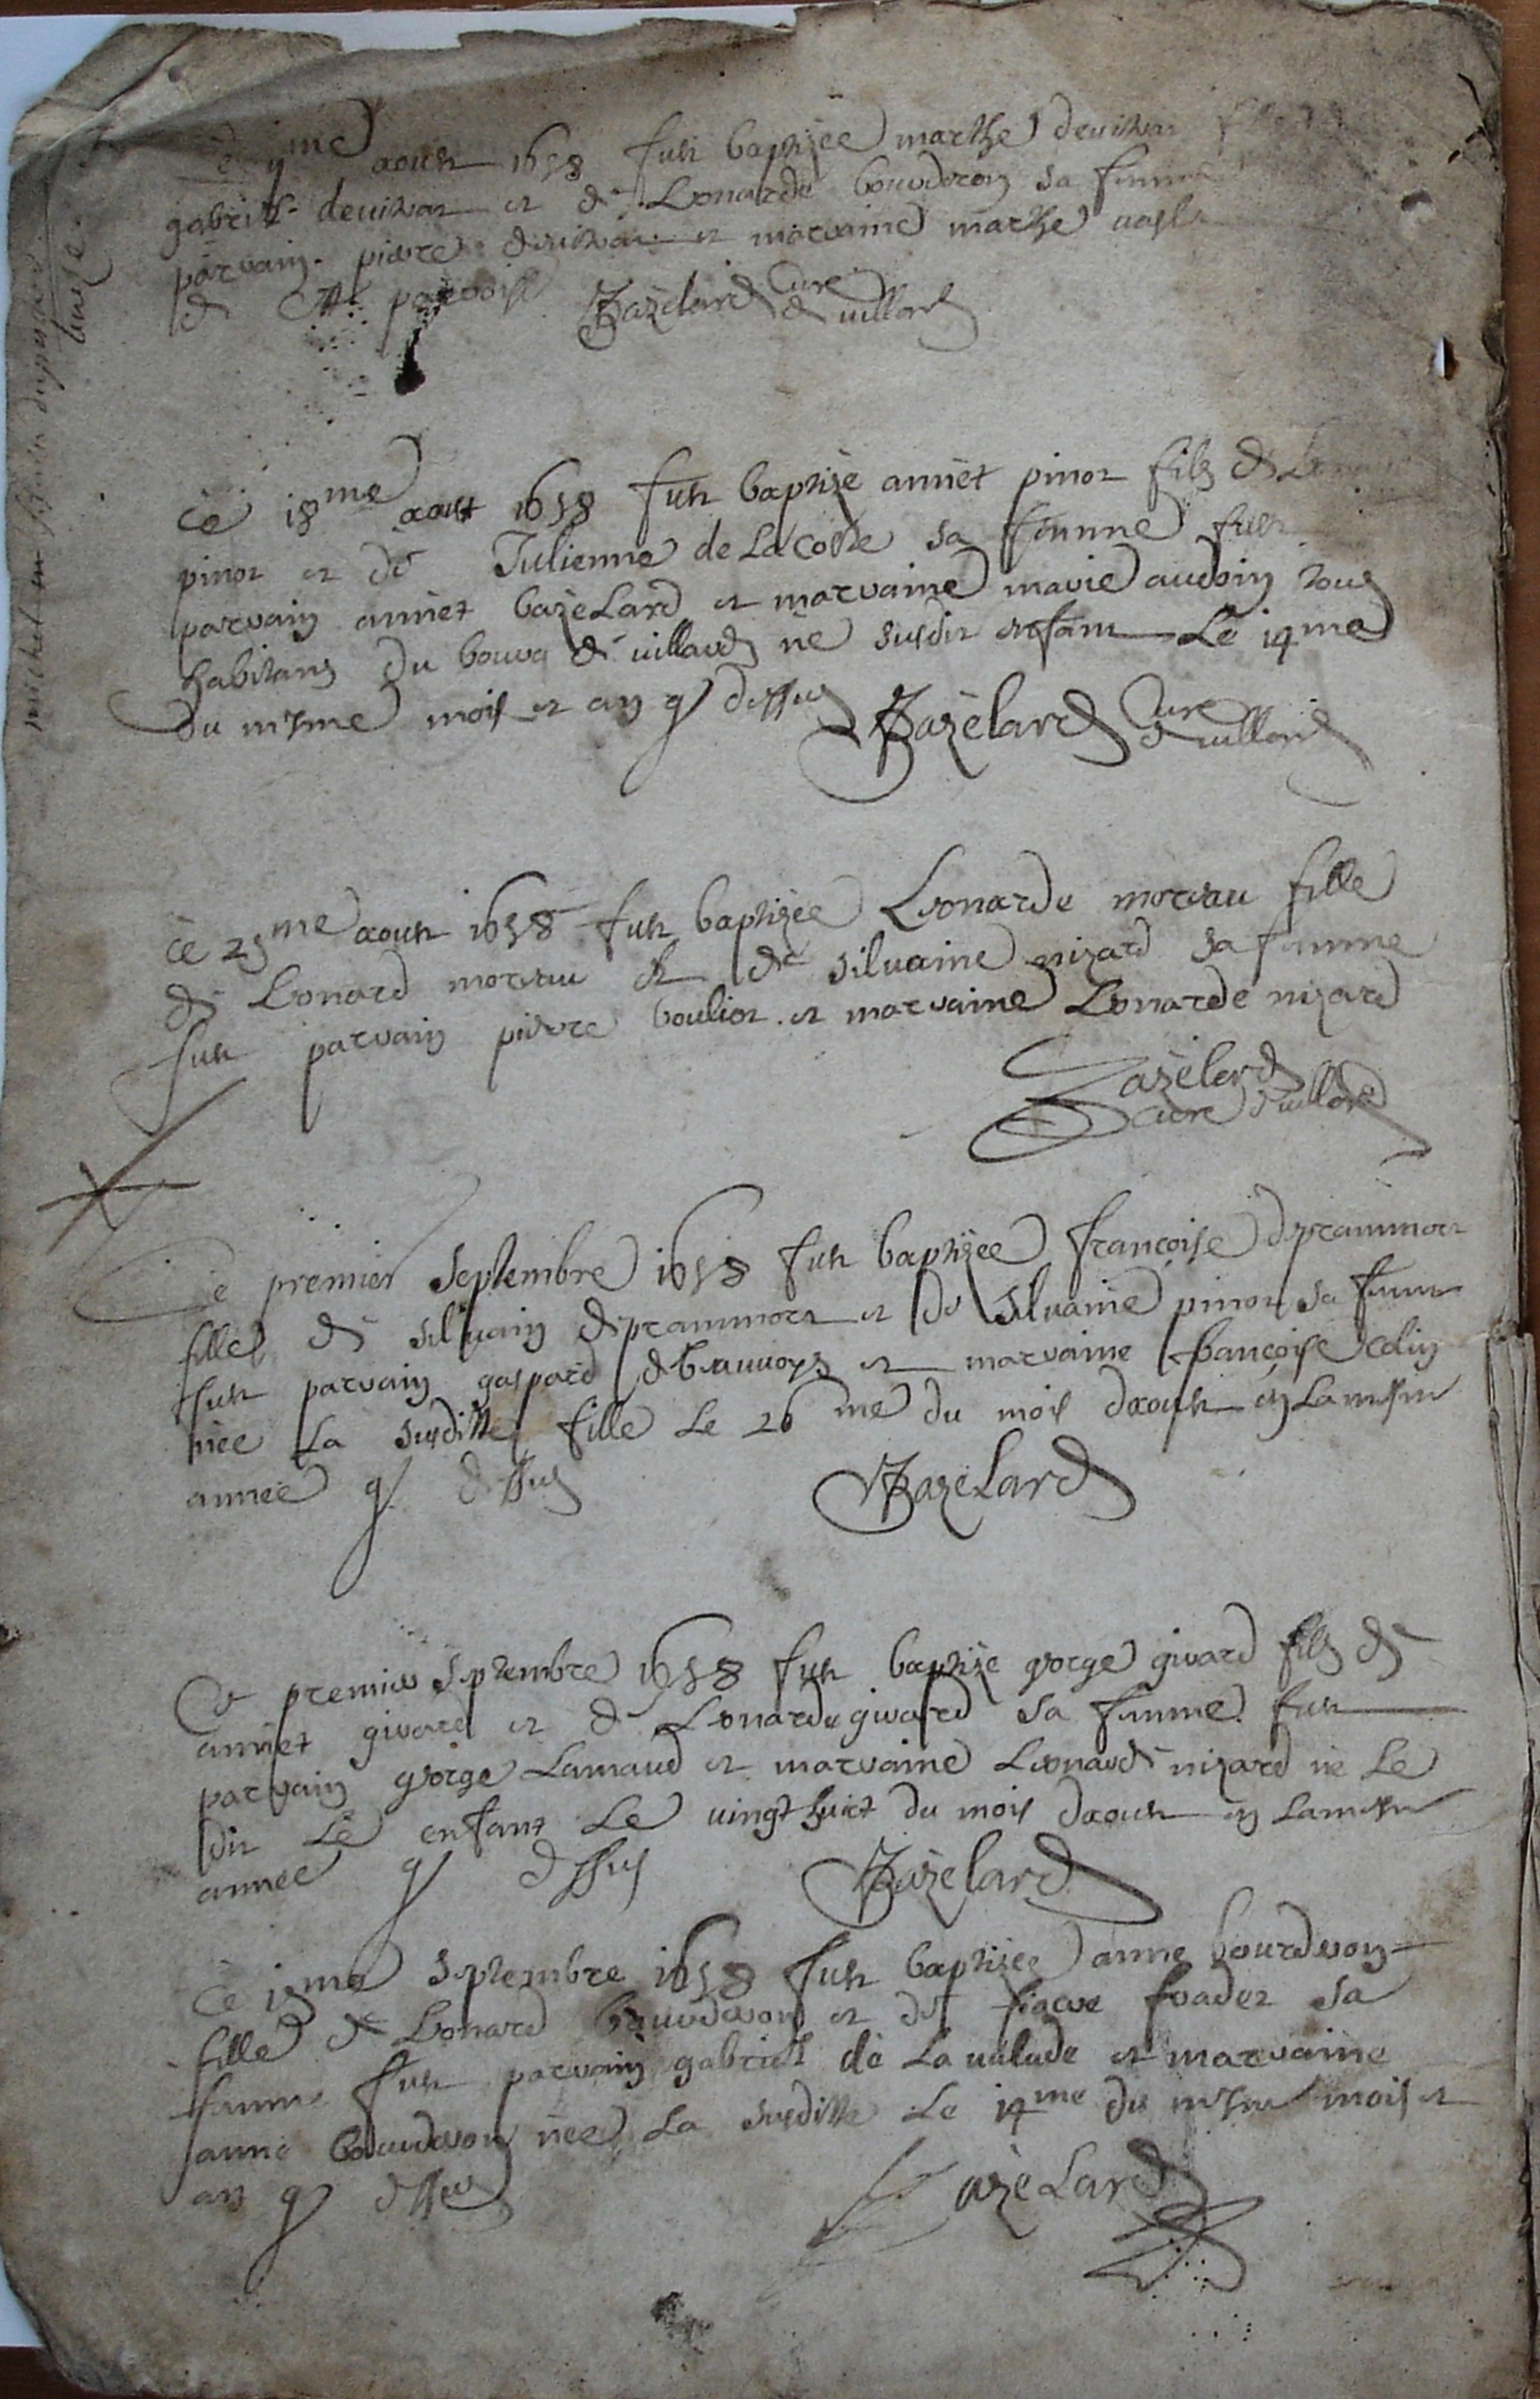 me aoust 1658 fust baptizée marthe
gabriel et de Leonarde bourderon sa femme
parrain pierre et marraine marthe
de paroisse Bazelard Curé
de villard
Ce 18me aoust 1658 fust baptizé annet pinot filz de
pinot et de Julienne de Lacoste sa femme fust
parrain annet bazeLard et marraine marie audoin tous
habitans du bourg de villard né susdit enfant Le 14me
du mesme mois et an q dessus Bazelard Curé
de villard
Ce 25me aoust 1658 fust baptizée Leonarde moreau fille
de Leonard moreau et de silvaine nizard sa femme
fust parrain pierre boulier et marraine Leonarde nizard
Bazelard
curé de villard
Ce premier septembre 1658 fust baptizée françoise
fille de silvain et de silvaine pinot sa femme
fust parrain gaspard et marraine françoise
née La susditte fille Le 26me du mois daoust en Lamesme
année q dessus Bazelard
Ce premier septembre 1658 fust baptizé george girard filz de
annet girard et de Leonarde girard sa femme fust
parrain george Lamaud et marraine Leonarde nizard né Le
dit Lé enfant Le vingt huict du mois daoust en Lamesme
année q dessus Bazelard
Ce 15me septembre 1658 fust baptizée anne bourderon
fille de Leonard bourderon et de fiacre sa
femme fust parrain gabriel de La valade et marraine
anne bourderon née La susditte Le 14me du mesme mois et
an q dessus Bazelard